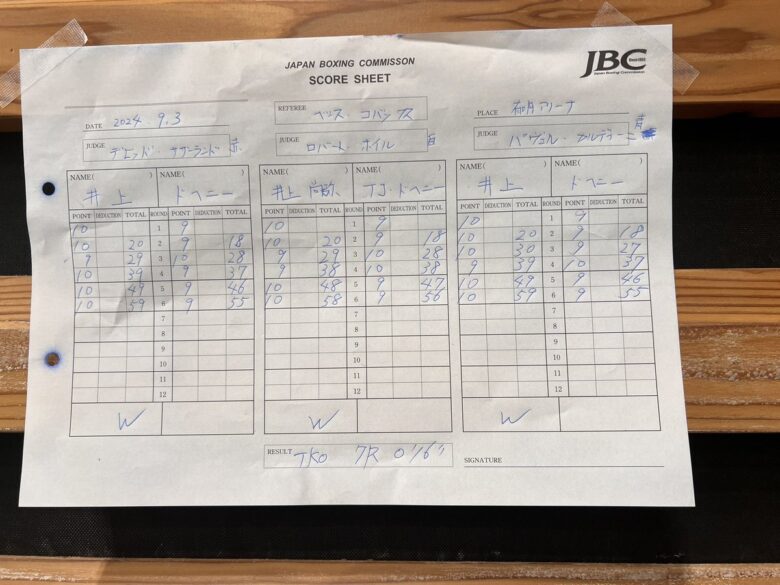 JAPAN BOXING COMMISSON
SCORE SHEET
JBC Since1952
Japan Boxing Commission
DATE 2024. 9.3
REFEREE ベンス・コバックス
PLACE 有明アリーナ
JUDGE デビッド・サザーランド 赤
JUDGE ロバート ホイル 白
JUDGE パヴェル・カルディーニ 青
NAME( ) NAME( ) NAME( ) NAME( ) NAME( ) NAME( )
井上 ドヘニー 井上尚弥 TJ・ドヘニー 井上 ドヘニー
POINT DEDUCTION TOTAL ROUND POINT DEDUCTION TOTAL POINT DEDUCTION TOTAL ROUND POINT DEDUCTION TOTAL POINT DEDUCTION TOTAL ROUND POINT DEDUCTION TOTAL
10 1 9 10 1 9 10 1 9
10 20 2 9 18 10 20 2 9 18 10 20 2 9 18
9 29 3 10 28 9 29 3 10 28 10 30 3 9 27
10 39 4 9 37 9 38 4 10 38 9 39 4 10 37
10 49 5 9 46 10 48 5 9 47 10 49 5 9 46
10 59 6 9 55 10 58 6 9 56 10 59 6 9 55
7 7 7
8 8 8
9 9 9
10 10 10
11 11 11
12 12 12
W W W
RESULT TKO 7R 0'16"
SIGNATURE